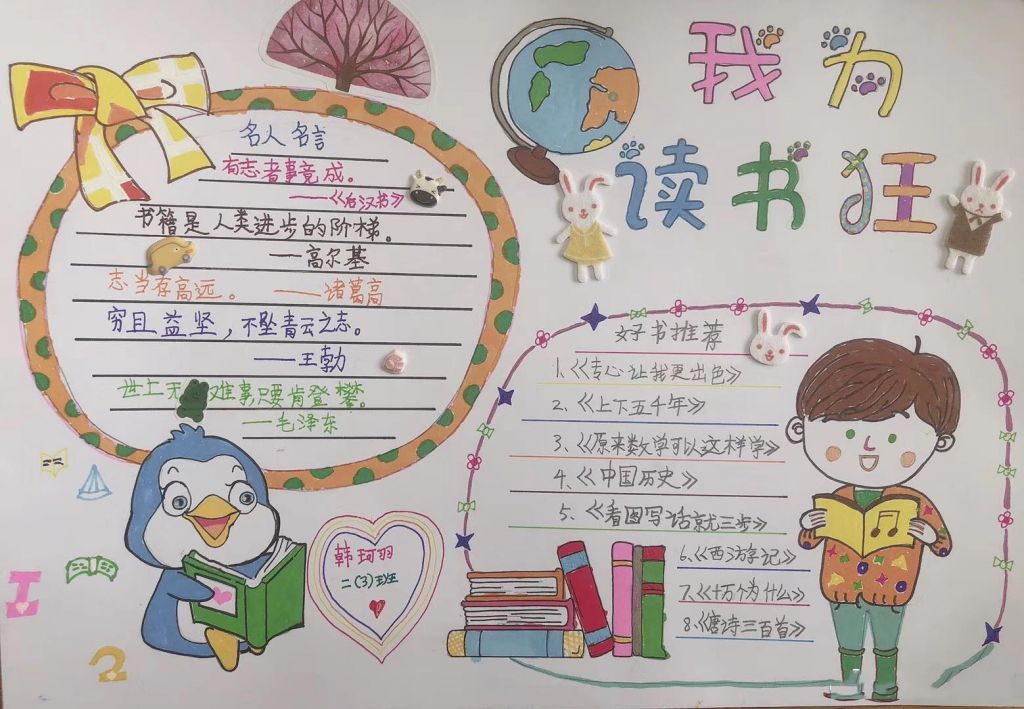 我为
读书狂
名人名言
有志者事竟成。
——《后汉书》
书籍是人类进步的阶梯。
—高尔基
志当存高远。 ——诸葛高
穷且益坚，不坠青云之志。
——王勃
世上无难事只要肯登攀。
—毛泽东
韩珂羽
二(3)班
好书推荐
1、《专心让我更出色》
2、《上下五千年》
3、《原来数学可以这样学》
4、《中国历史》
5、《看图写话就三步》
6、《西游记》
7、《十万个为什么》
8、《唐诗三百首》